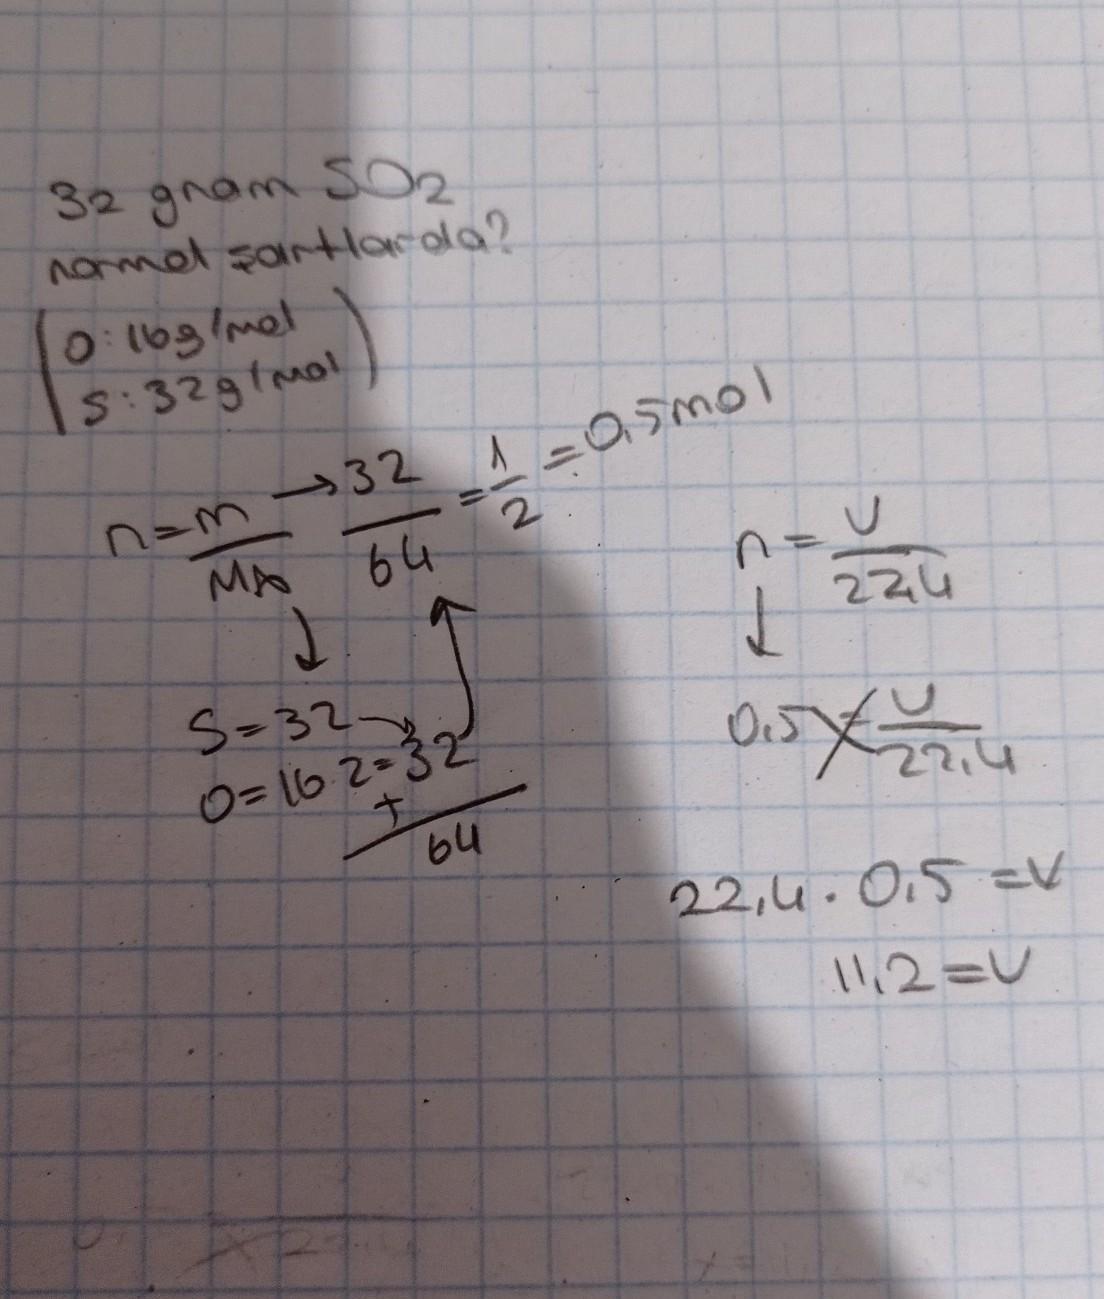 32 gram SO2
normal şartlarda?
(O: 16g/mol
S: 32g/mol)
n = m/MA → 32/64 = 1/2 = 0,5 mol
S = 32
O = 16.2 = 32
+
64
n = V/22,4
0,5 = V/22,4
22,4 . 0,5 = V
11,2 = V